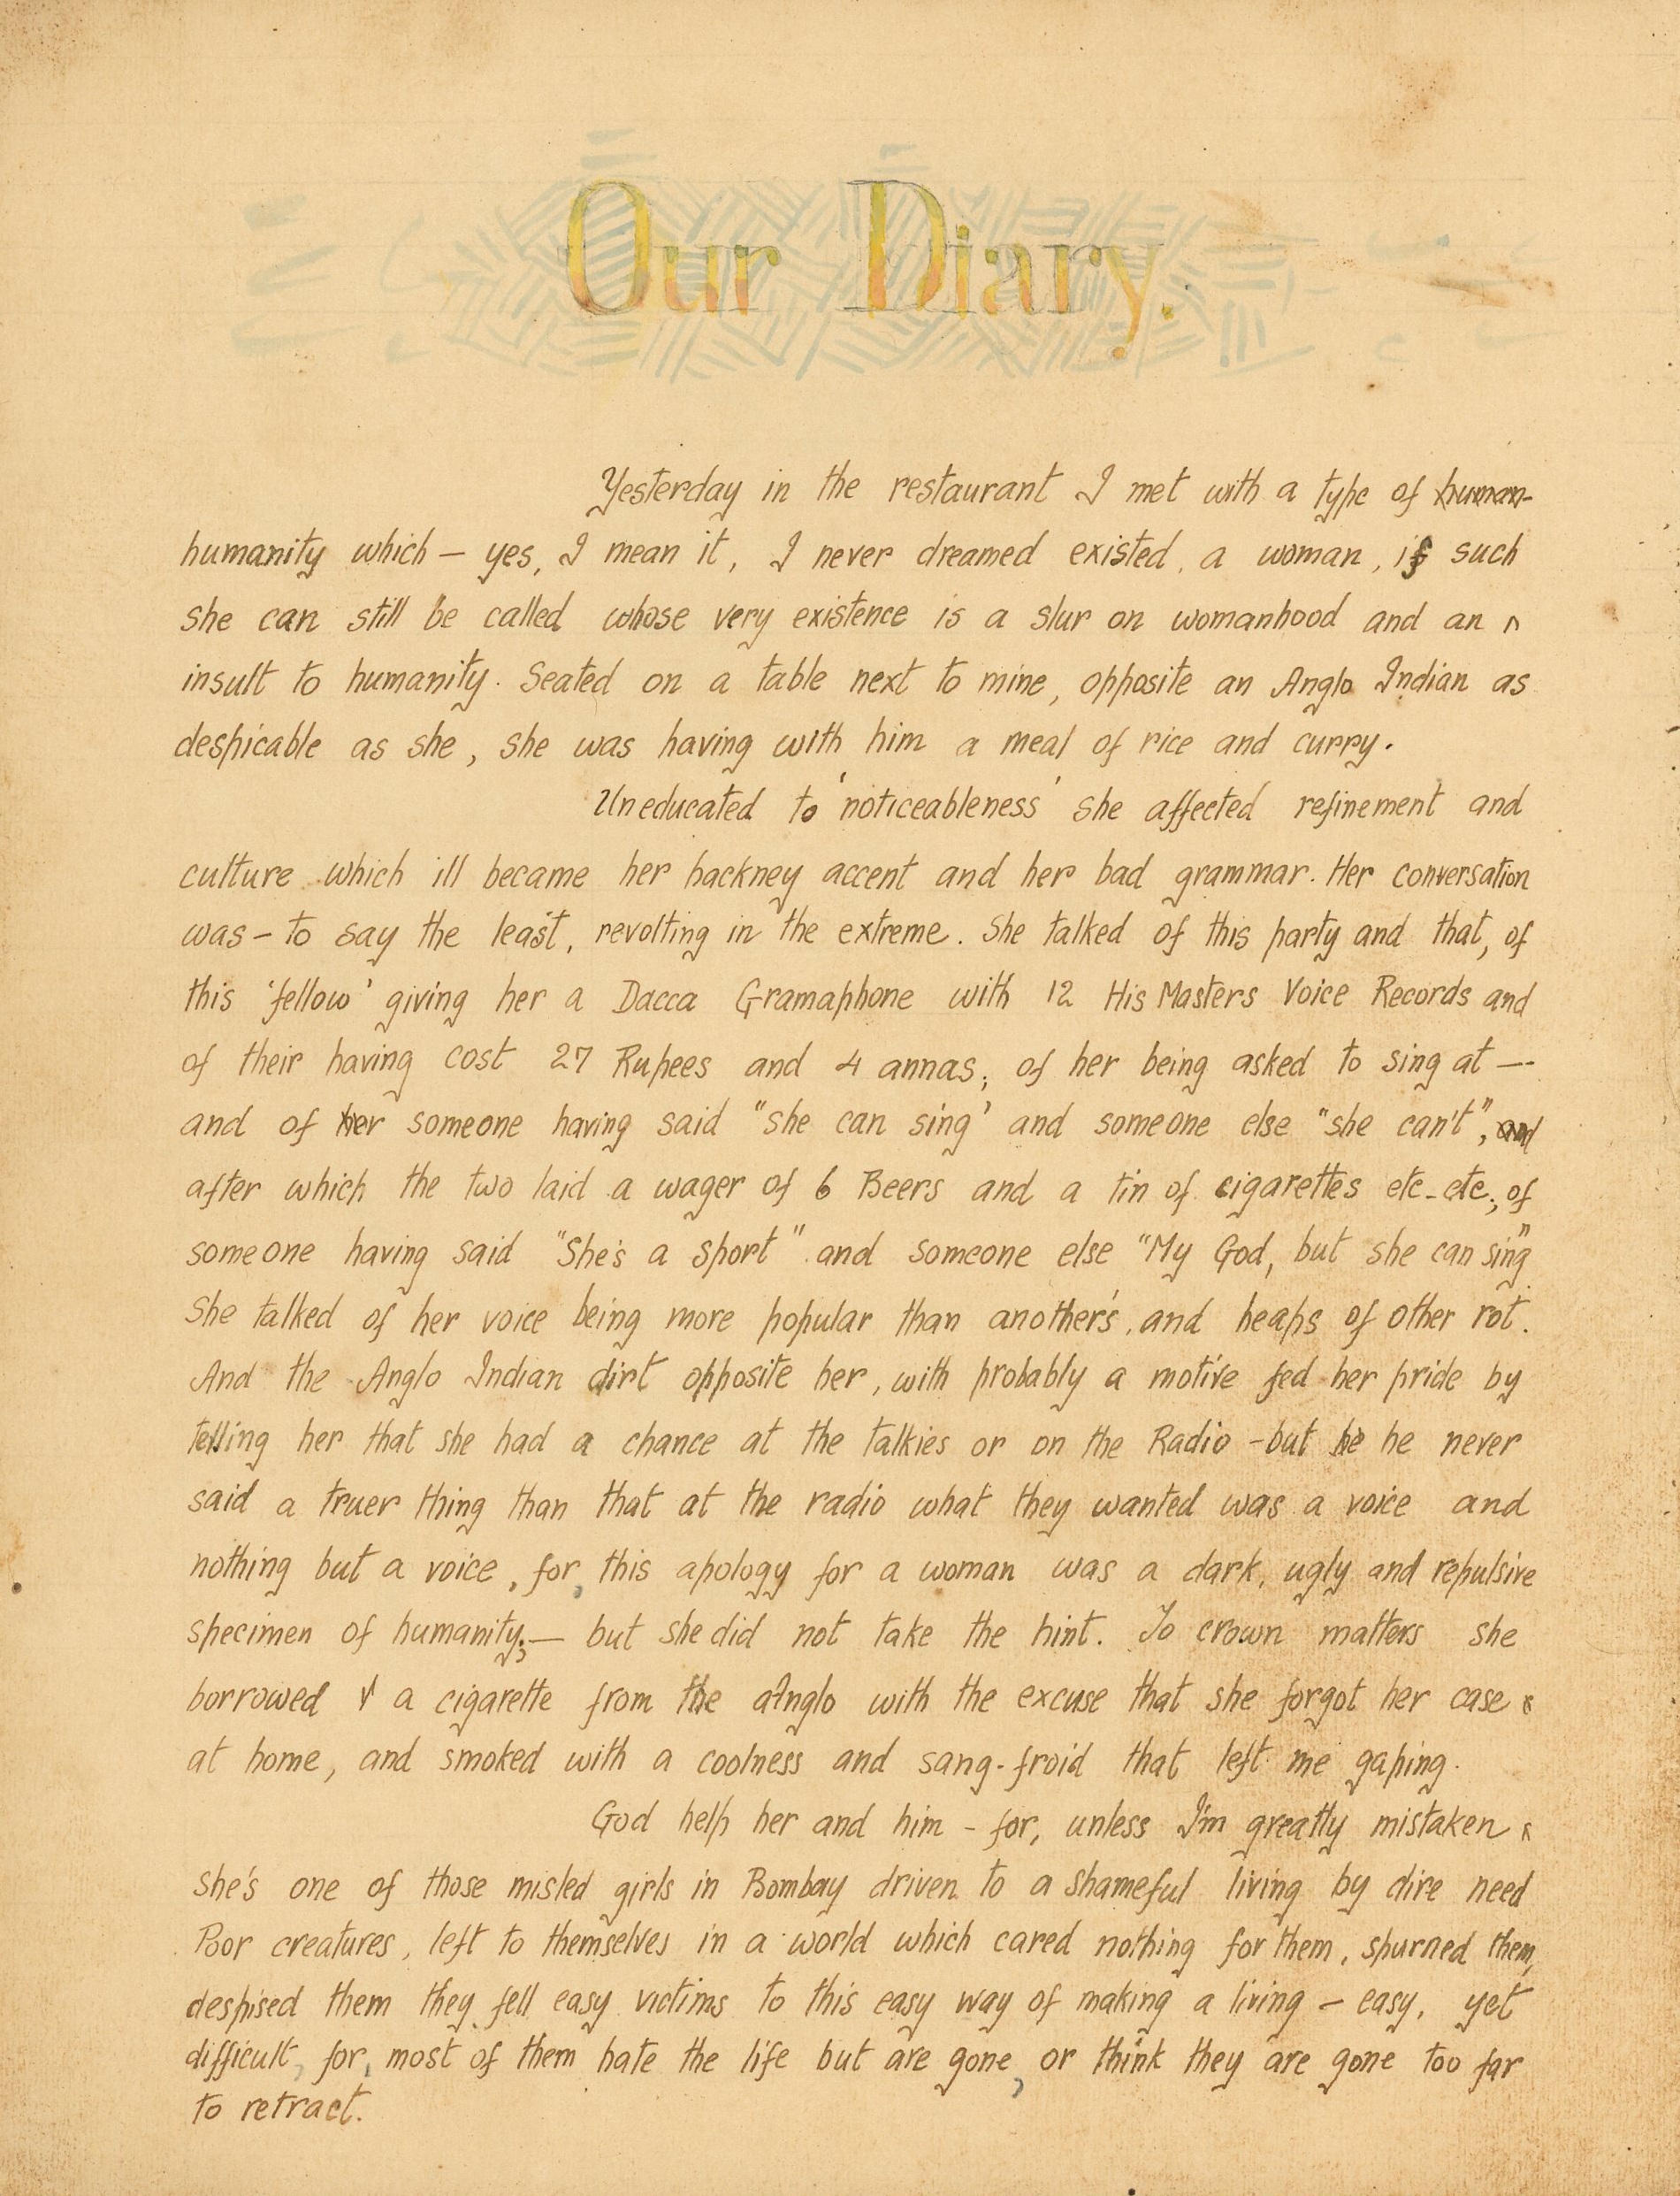 Our Diary.
Yesterday in the restaurant I met with a type of human-
humanity which — yes, I mean it, I never dreamed existed, a woman, if such
she can still be called whose very existence is a slur on womanhood and an
insult to humanity. Seated on a table next to mine, opposite an Anglo Indian as
despicable as she, she was having with him a meal of rice and curry.
Uneducated to 'noticeableness' she affected refinement and
culture which ill became her hackney accent and her bad grammar. Her conversation
was — to say the least, revolting in the extreme. She talked of this party and that, of
this 'fellow' giving her a Dacca Gramaphone with 12 His Masters Voice Records and
of their having cost 27 Rupees and 4 annas; of her being asked to sing at —
and of her someone having said "she can sing' and someone else "she can't", and
after which the two laid a wager of 6 Beers and a tin of cigarettes etc-etc; of
someone having said "She's a sport" and someone else "My God, but she can sing"
She talked of her voice being more popular than another's, and heaps of other rot.
And the Anglo Indian dirt opposite her, with probably a motive fed her pride by
telling her that she had a chance at the talkies or on the Radio - but he he never
said a truer thing than that at the radio what they wanted was a voice and
nothing but a voice, for, this apology for a woman was a dark, ugly and repulsive
specimen of humanity; — but she did not take the hint. To crown matters she
borrowed a cigarette from the Anglo with the excuse that she forgot her case
at home, and smoked with a coolness and sang-froid that left me gaping.
God help her and him - for, unless I'm greatly mistaken
she's one of those misled girls in Bombay driven to a shameful living by dire need
Poor creatures, left to themselves in a world which cared nothing for them, spurned them,
despised them they fell easy victims to this easy way of making a living — easy, yet
difficult, for, most of them hate the life but are gone, or think they are gone too far
to retract.